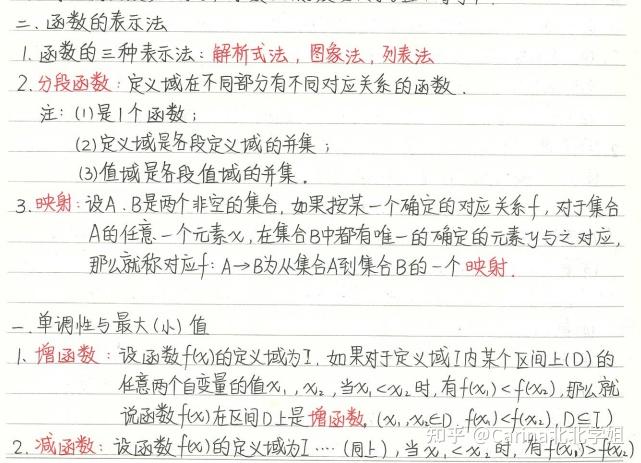 二.函数的表示法
1.函数的三种表示法：解析式法，图象法，列表法
2.分段函数：定义域在不同部分有不同对应关系的函数．
注：(1)是1个函数；
(2)定义域是各段定义域的并集；
(3)值域是各段值域的并集．
3.映射：设A．B是两个非空的集合，如果按某一个确定的对应关系f，对于集合
A的任意一个元素x，在集合B中都有唯一的确定的元素y与之对应，
那么就称对应f：A→B为从集合A到集合B的一个映射．
一.单调性与最大（小）值
1.增函数：设函数f(x)的定义域为I，如果对于定义域I内某个区间上(D)的
任意两个自变量的值x₁，x₂，当x₁<x₂时，有f(x₁)<f(x₂)，那么就
说函数f(x)在区间D上是增函数．(x₁,x₂∈D，f(x₁)<f(x₂)，D⊆I)
2.减函数：设函数f(x)的定义域为I····(同上)，当x₁<x₂时，有f(x₁)>f(x₂)
知乎 @Carina北北学姐